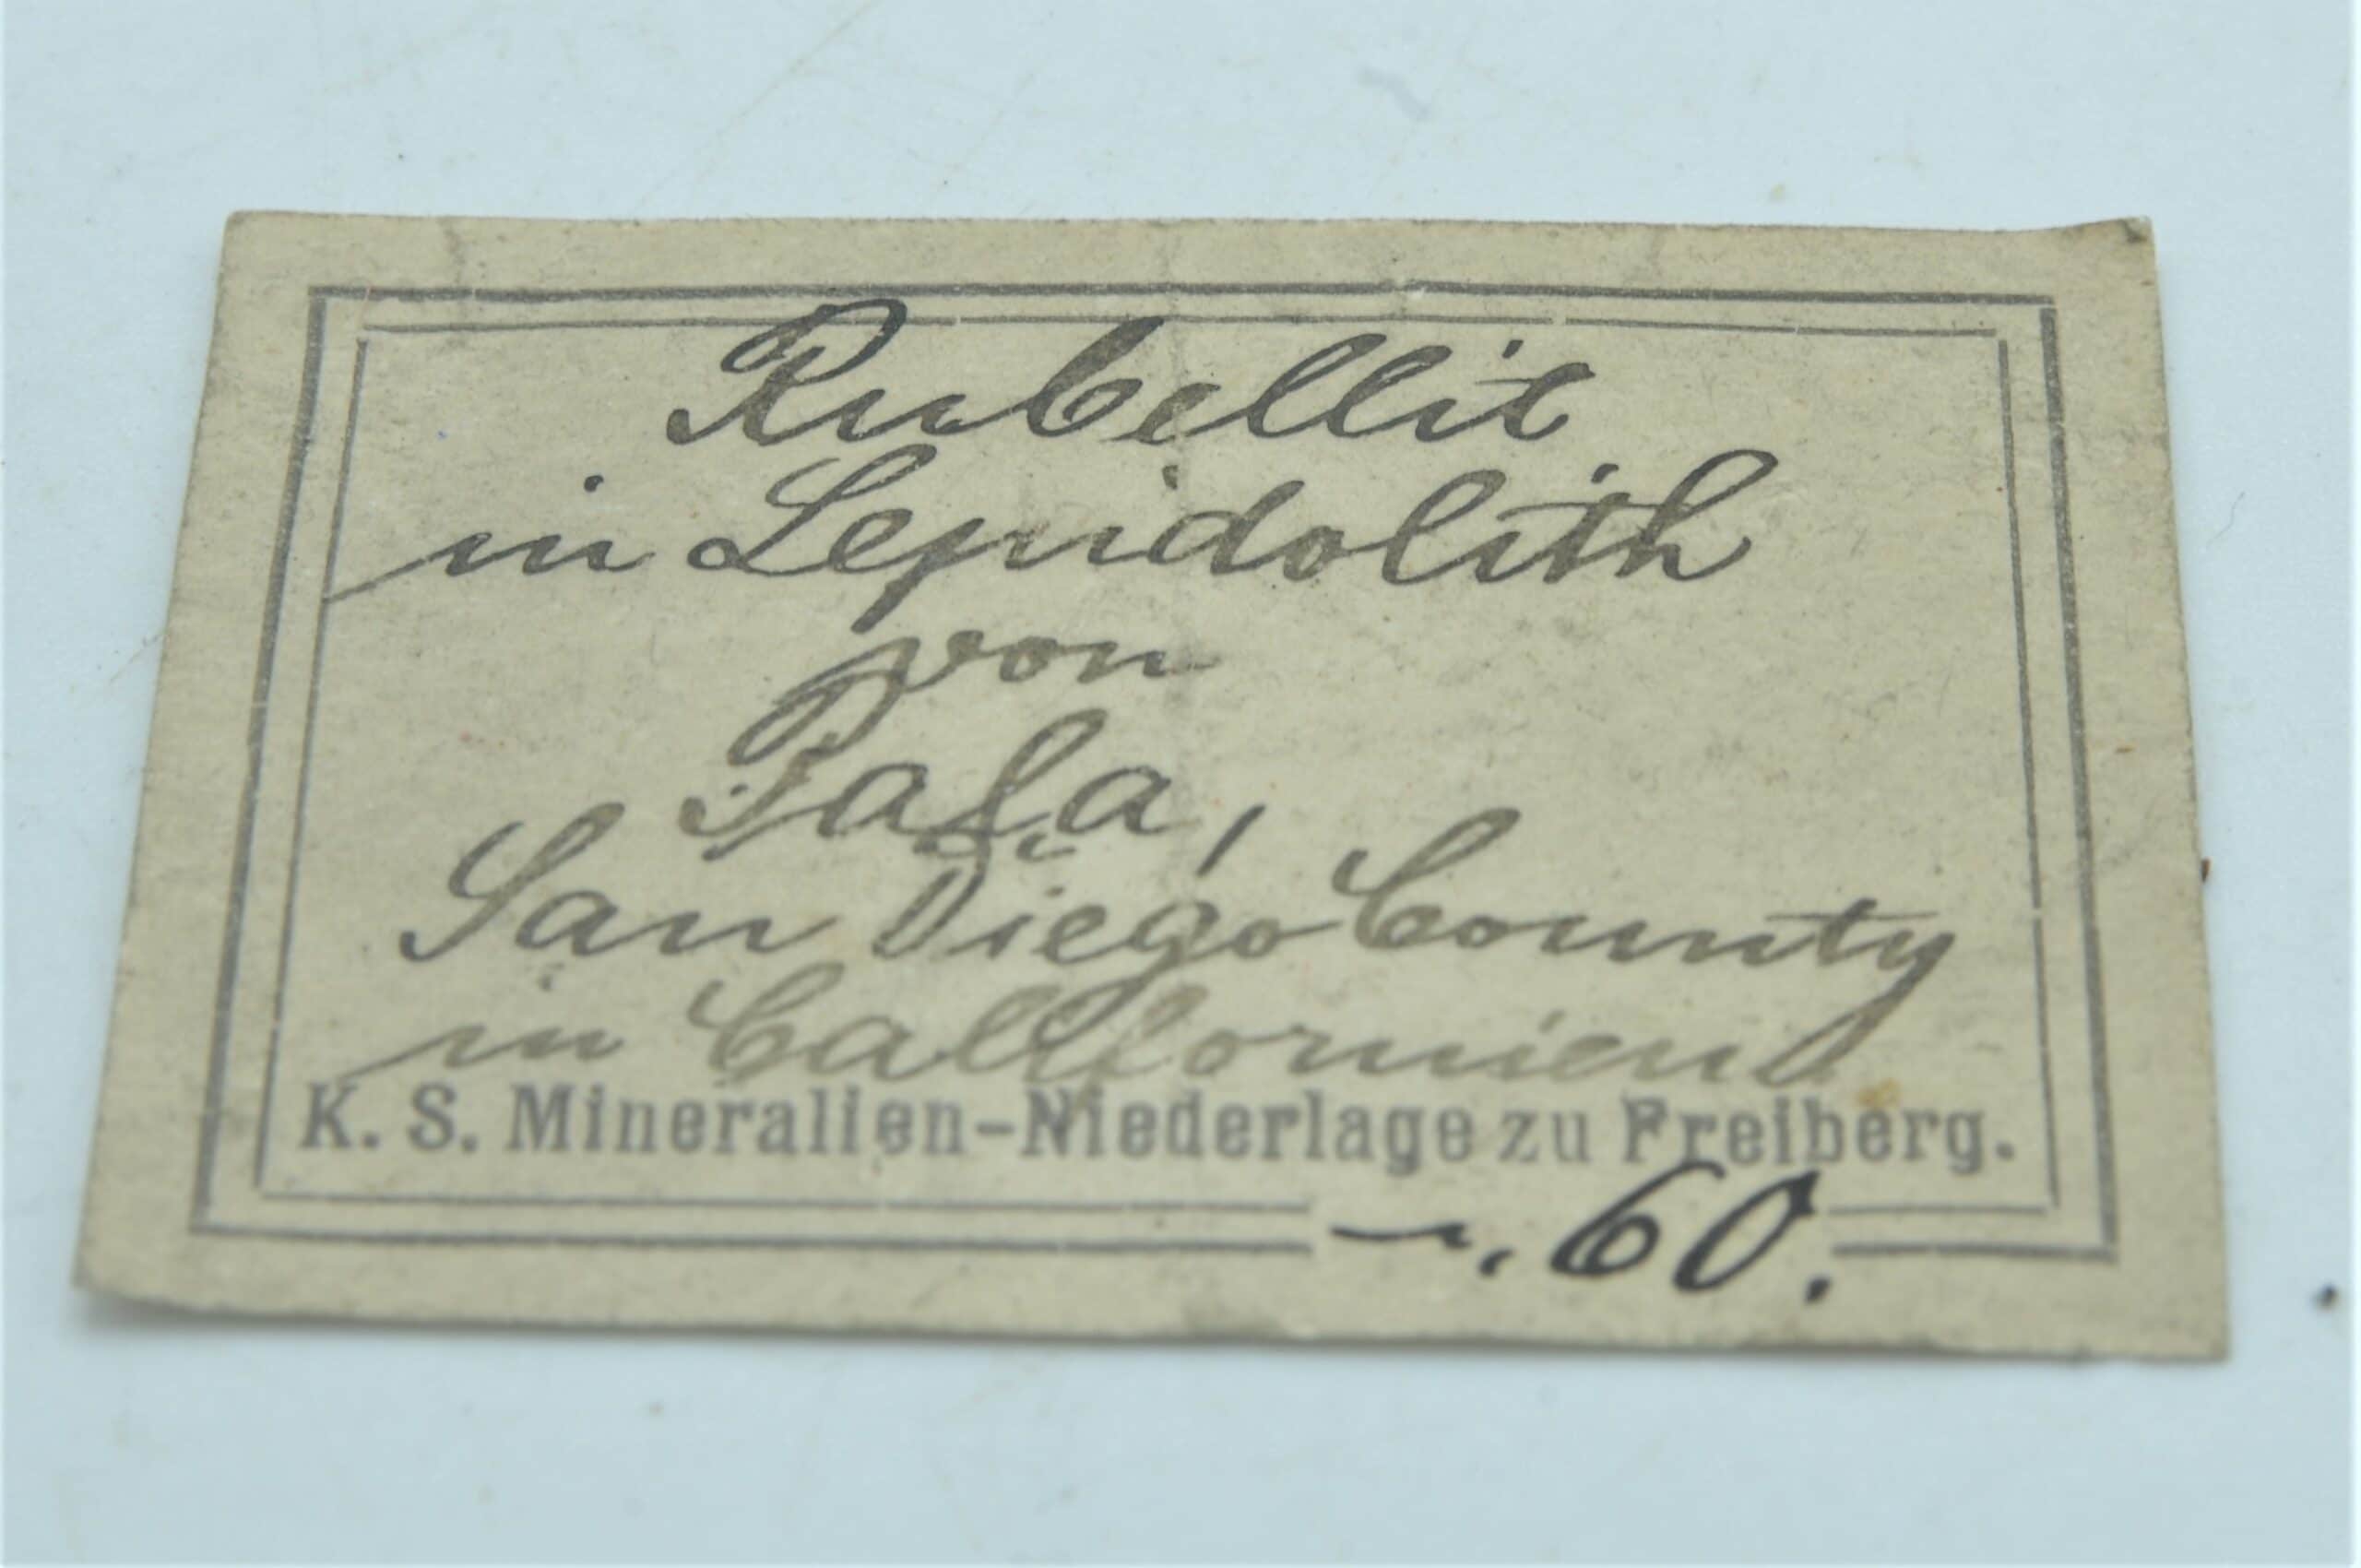 Rubellit
in Lepidolith
von
Pala,
San Diego County
in Californien
K. S. Mineralien-Niederlage zu Freiberg.
–.60.